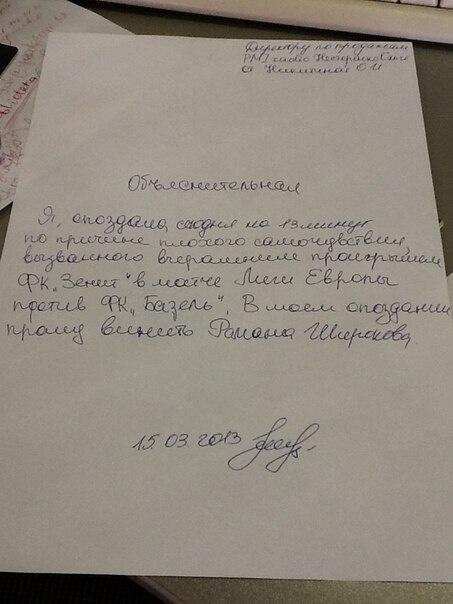 Директору по продажам
PMI radio Нестеренко Ольге
от Никитиной О.И
Объяснительная
Я, опоздала сегодня на 13 минут
по причине плохого самочувствия,
вызванного вчерашним проигрышем
ФК „Зенит" в матче Лиги Европы
против ФК „Базель". В моем опоздании
прошу винить Романа Широкова
15.03.2013